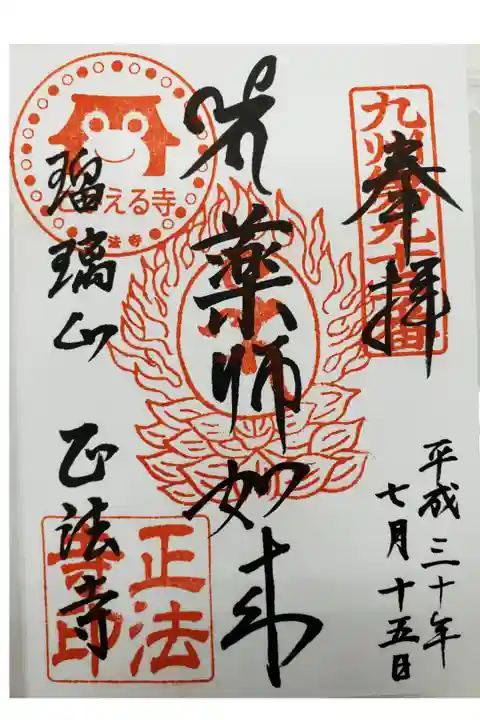 奉拝
平成三十年
七月十五日
薬師如来
瑠璃山 正法寺
える寺
法寺
正法
寺印